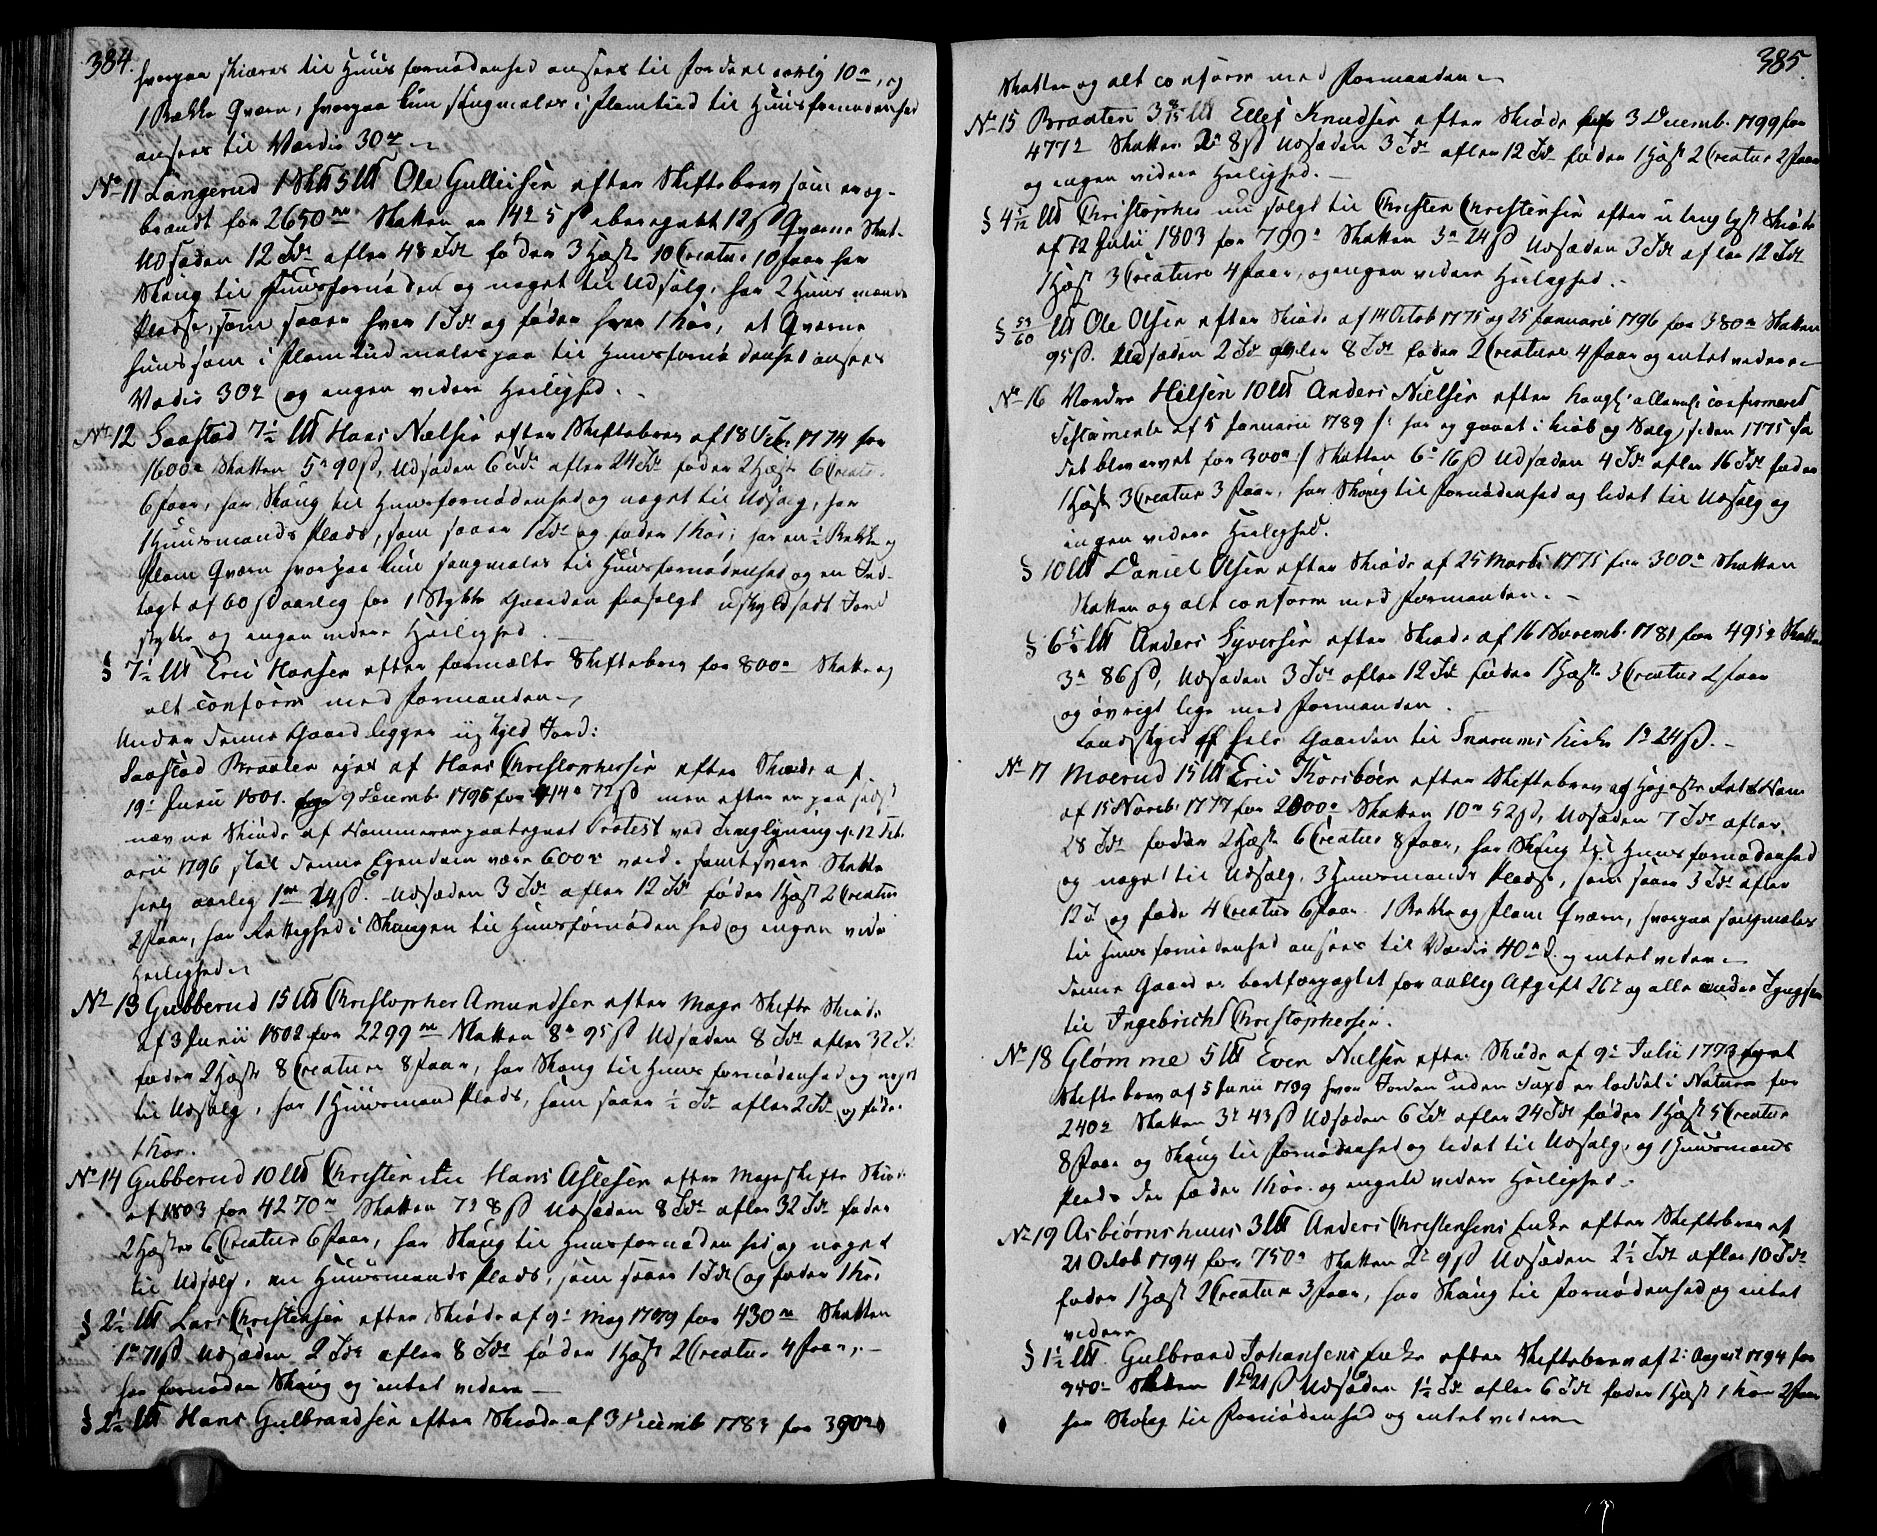 384.
hvorpaa skiæres til Huus fornødenhed ansees til Jordens aarlig 10rd, og
1 Bække Qværn, hvorpaa kun males i flomtiid til Huusfornødenhed
ansees til Værdie 30rd
No 11 Langerud 1 Skll 5 lb Ole Gulleicsen efter Skiftebrev som er op-
brændt for 2650rd Skatten er 14rd 5 s iberegnet 12 s Qværne Skat.
Udsæden 12 Tdr avler 48 Tdr føder 3 Hæste 10 Creatur 10 Faar har
Skoug til Huusfornøden og noget til Udsalg, har 2 Huusmænds
Pladse, som saaer hver 1 Td og føder hver 1 Koe, et Qværne
Huus som i flom tiid males paa til Huusfornødenhed ansees
Værdie 30rd og ingen videre Herlighed.
No 12 Saastad 7 1/2 lb Hans Nielsen efter Skiftebrev af 18 Octbr 1774 for
1600rd Skatten 5rd 90 s, Udsæden 6 Tdr avler 24 Tdr føder 2 Hæste 6 Creatur
6 Faar, har Skoug til Huusfornødenhed og noget til Udsalg, har
1 Huusmands Plads, som saaer 1 Td og føder 1 Koe, har en 1/2 Bække
flom Qværn hvorpaa kun males til Huusfornødenhed og en Ind-
tægt af 60 s aarlig for 1 Stykke Gaarden frasolgt uskyldsadt Jord
stykke og ingen videre Herlighed.
§ 7 1/2 lb Eric Hansen efter formælte Skiftebrev for 800rd Skatte og
alt conform med Formanden
Under denne Gaard ligger uskyld Jord:
Saastad Braaten ejes af Hans Christophersen efter Skiøde af
19 Junii 1801. 9 Decemb 1795 for 414rd 72 s men efter en paa sidst
nævnte Skiøde af Kammeret paategnet Protest ved Tinglysning 12 Feb
arii 1796 skal denne Ejendom være 600rd værd. samt svare Skatte
selv aarlig 1rd 24 s. Udsæden 3 Tdr avler 12 Tdr føder 1 Hæst 2 Creatur
2 Faar, har Rettighed i Skougen til Huusfornødenhed og ingen videre
Herlighed
No 13 Gubberud 15 lb Christopher Amundsen efter Mage Skifte Skiøde
af 3 Junii 1802 for 2299rd Skatten 8rd 95 s Udsæden 8 Tdr avler 32 Tdr
føder 2 Hæste 8 Creature 8 Faar, har Skoug til Huusfornødenhed og noget
til Udsalg, har 1 Huusmand Plads, som saaer 1/2 Td avler 2 Td og føder
1 Koe.
No 14 Gubberud 10 lb Christen Hans Aslesen efter Mageskifte Skiøde
af 1803 for 4270rd Skatten 7rd 8 s Udsæden 8 Tdr avler 32 Tdr føder
2 Hæster 6 Creatur 6 Faar, har Skoug til Huusfornødenhed og noget
til Udsalg, en Huusmands Plads, som saaer 1 Td og føder 1 Koe
§ 2 1/2 lb Lars Christensen efter Skiøde af 9 May 1799 for 430rd Skatten
1rd 71 s Udsæden 2 Tdr avler 8 Tdr føder 1 Hæst 2 Creatur 4 Faar,
har fornøden Skoug og intet videre
§ 2 1/2 lb Hans Gulbrandsen efter Skiøde af 3 Decemb 1783 for 390rd
385.
Skatten og alt conform med Formanden
No 15 Braaten 3 8/15 lb Ellef Knudsen efter Skiøde 3 Decemb. 1799 for
477rd Skatten 2rd 8 s Udsæden 3 Tdr avler 12 Tdr føder 1 Hæst 2 Creatur 2 Faar
og ingen videre Herlighed.
§ 4 1/12 lb Christopher nu solgt til Christen Christensen efter u tinglyst Skiøde
af 12 Julii 1803 for 799rd Skatten 3rd 24 s Udsæden 3 Tdr avler 12 Tdr
1 Hæst 3 Creature 4 Faar, og ingen videre Herlighed.
§ 53/60 lb Ole Olsen efter Skiøde af 14 Octob 1775 og 25 Januarii 1796 for 380rd Skatten
95 s. Udsæden 2 Tdr avler 8 Tdr føder 2 Creature 4 Faar og intet videre
No 16 Nordre Hilsen 10 lb Anders Nielsen efter kongl: allernaad: confirmeret
Testamente af 5 Januarii 1789 /: har ej gaaet i kiøb og Salg, siden 1775 da
det blev arvet for 300rd :/ Skatten 6rd 16 s Udsæden 4 Tdr avler 16 Tdr føder
1 Hæst 3 Creatur 3 Faar, har Skoug til Fornødenhed og lidet til Udsalg og
ingen videre Herlighed.
§ 10 lb Daniel Olsen efter Skiøde af 25 Marts 1775 for 300rd Skatten
Skatten og alt conform med Formanden.
§ 6 5/6 lb Anders Syversen efter Skiøde af 16 Novemb. 1781 for 495rd Skatten
3rd 86 s, Udsæden 3 Tdr avler 12 Tdr føder 1 Hæst 3 Creatur 2 Faar
og øvrigt lige med Formanden.
Landskyld af hele Gaarden til Snarums Kirke 1rd 24 s.
No 17 Moerud 15 lb Eric Korsboen efter Skiftebrev og Høyeste Rets Dom
af 15 Novbr 1777 for 2000rd Skatten 10rd 52 s, Udsæden 7 Tdr avler
28 Tdr føder 2 Hæste 6 Creatur 8 Faar, har Skoug til Huusfornødenhed
og noget til Udsalg, 3 Huusmands Pladse, som saaer 3 Tdr avler
12 T og føde 4 Creatur 6 Faar. 1 Bække og flom Qværn, hvorpaa males
til Huusfornødenhed ansees til Værdie 40rd og intet videre
denne Gaard er bortforpagtet for aarlig Afgift 26rd og alle andre
til Ingebricht Christophersen.
No 18 Glømme 5 lb Even Nielsen efter Skiøde af 9 Julii 1773 samt
Skiftebrev af 5 Junii 1799 hvor Jorden uden Taxt er loddet i Natura for
240rd Skatten 3rd 43 s Udsæden 6 Tdr avler 24 Tdr føder 1 Hæst 5 Creatur
8 Faar og Skoug til Fornødenhed og lidet til Udsalg, og 1 Huusmands
Plads der føder 1 Koe. og ingen videre Herlighed.
No 19 Asbiørnshuus 3 lb Anders Christensens Enke efter Skiftebrev af
21 Octob 1794 for 750rd Skatten 2rd 9 s Udsæden 2 1/2 Tdr avler 10 Tdr
føder 1 Hæst 2 Creatur 3 Faar, har Skoug til Fornødenhed og intet
videre
§ 1 1/2 lb Gulbrand Johansens Enke efter Skiftebrev af 2 August 1794 for
350rd Skatten 1rd 21 s Udsæden 1 1/2 Td avler 6 Tdr føder 1 Hæst 1 Koe 2 Faar
har Skoug til Fornødenhed og intet videre